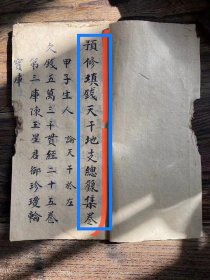 預修填錢天干地支總錢集卷
甲子生人　論天干於左
欠錢五萬三千貫經二十五卷
第三庫陳玉星君御珍瓊輪
寶庫